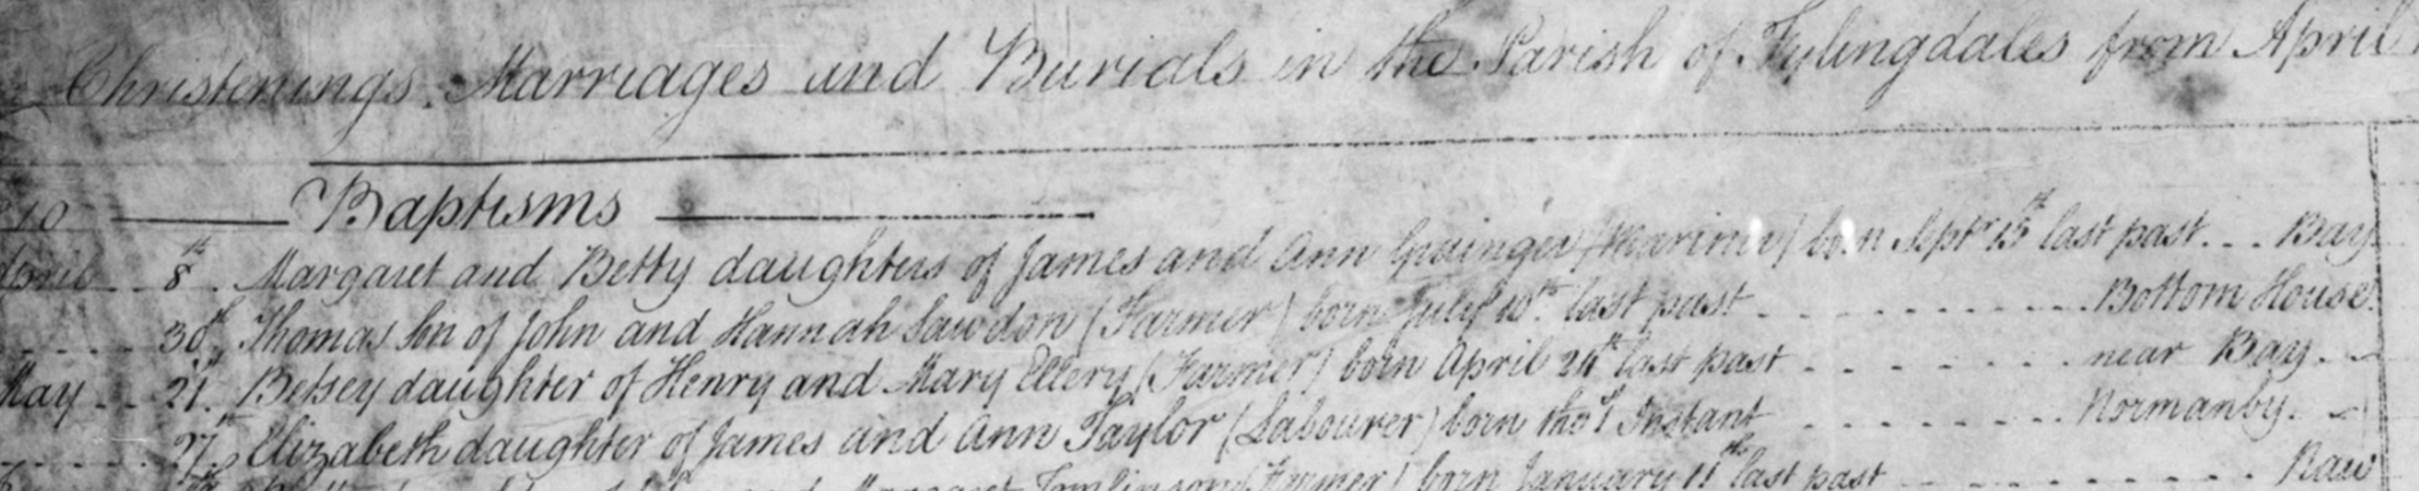 Christenings, Marriages and Burials in the Parish of Fylingdales from April
10 Baptisms
April 8th Margaret and Betty daughters of James and Ann Grainger (Mariner) born Septr 15th last past. Bay
30th Thomas Son of John and Hannah Sawdon (Farmer) born July 10th last past Bottom House.
May 21st Betsey daughter of Henry and Mary Ellery (Farmer) born April 24th last past near Bay.
27th Elizabeth daughter of James and Ann Taylor (Labourer) born the 1st Instant Normanby.
Margaret Tomlinson (Farmer) born January 11th last past Raw